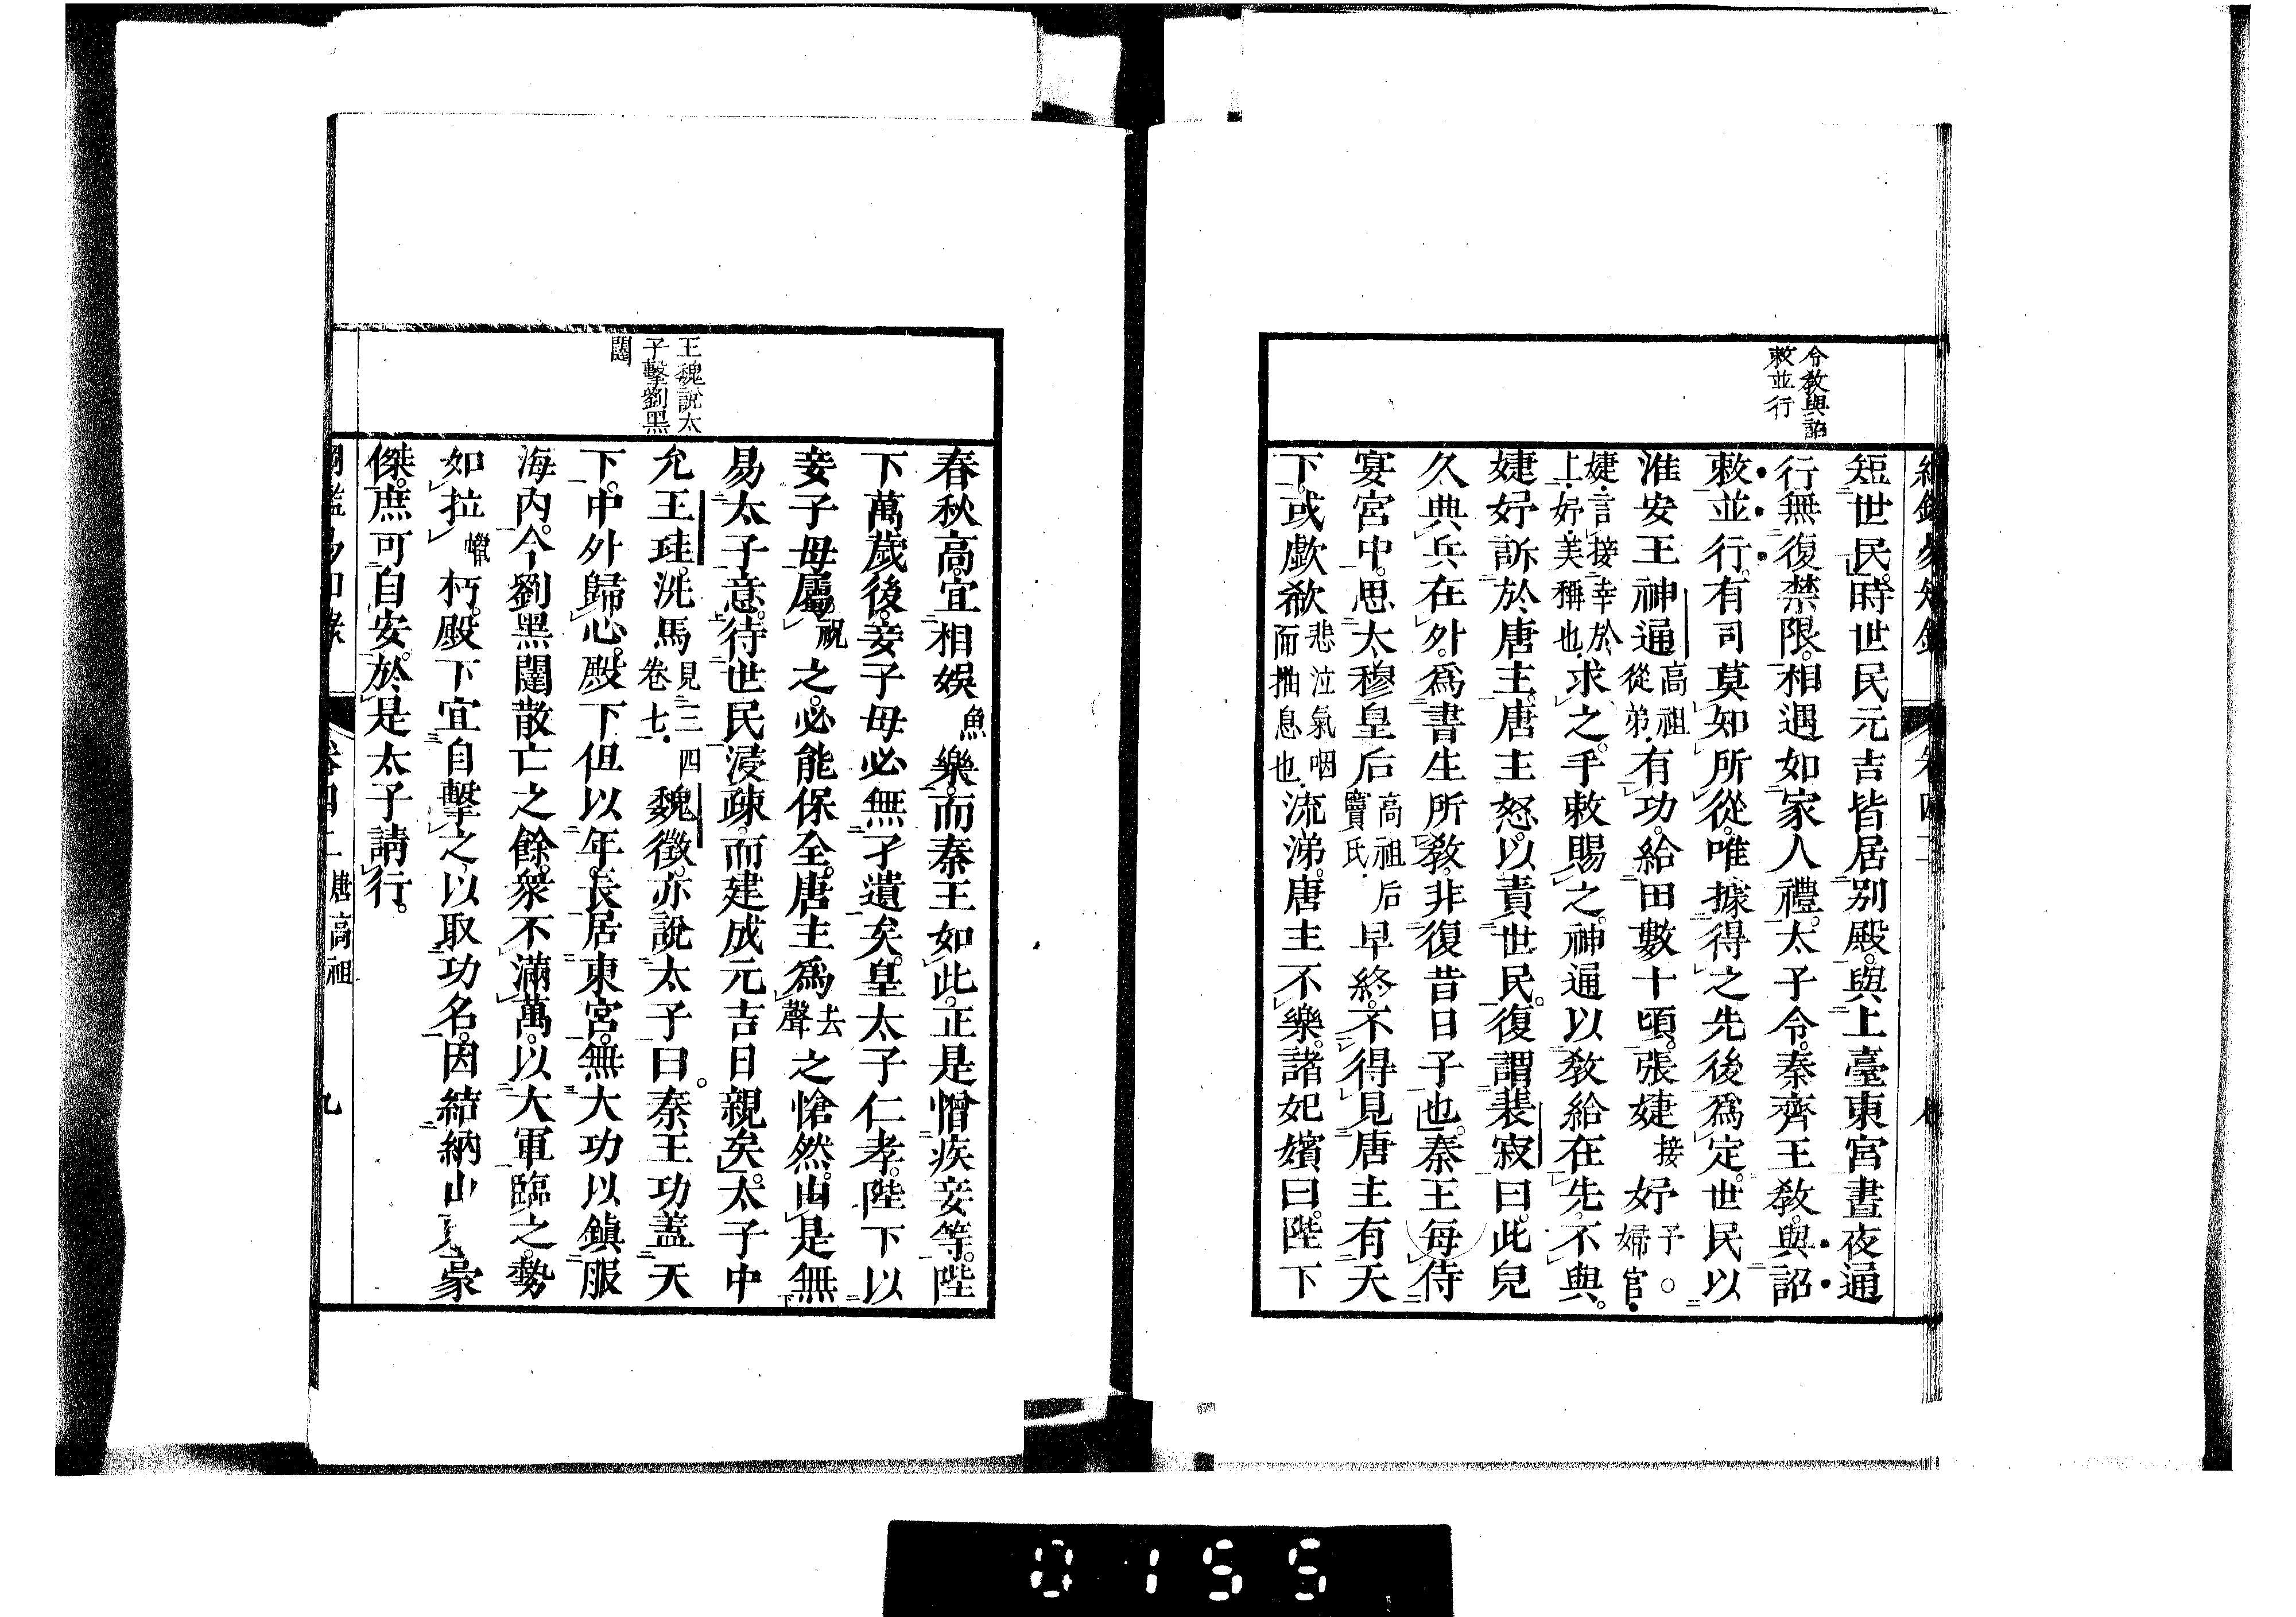 令敎與詔
敕並行
短世民。時世民元吉皆居別殿。與上臺東宮晝夜通
行無復禁限。相遇如家人禮。太子令。秦齊王敎。與詔
敕並行。有司莫知所從。唯據得之先後爲定。世民以
淮安王神通高祖從弟有功。給田數十頃。張婕接妤予。婦官。
婕言接幸於上妤美稱也求之。手敕賜之。神通以敎給在先。不與。
婕妤訴於唐主。唐主怒。以責世民。復謂裴寂曰。此兒
久典兵在外。爲書生所敎。非復昔日子也。秦王每侍
宴宮中。思太穆皇后高祖后竇氏早終。不得見唐主有天
下。或歔欷悲泣氣咽而抽息也流涕。唐主不樂。諸妃嬪曰。陛下
王魏說太
子擊劉黑
闥
春秋高。宜相娛魚樂。而秦王如此。正是憎疾妾等。陛
下萬歲後。妾子母必無孑遺矣。皇太子仁孝。陛下以
妾子母屬祝之。必能保全。唐主爲去聲之愴然。由是無
易太子意。待世民浸疎。而建成元吉日親矣。太子中
允王珪。洗馬見三四卷七魏徵。亦說太子曰。秦王功蓋天
下。中外歸心。殿下但以年長居東宮。無大功以鎭服
海內。今劉黑闥散亡之餘。衆不滿萬。以大軍臨之。勢
如拉蠟朽。殿下宜自擊之以取功名。因結納山東豪
傑。庶可自安。於是太子請行。
唐高祖
九
0155